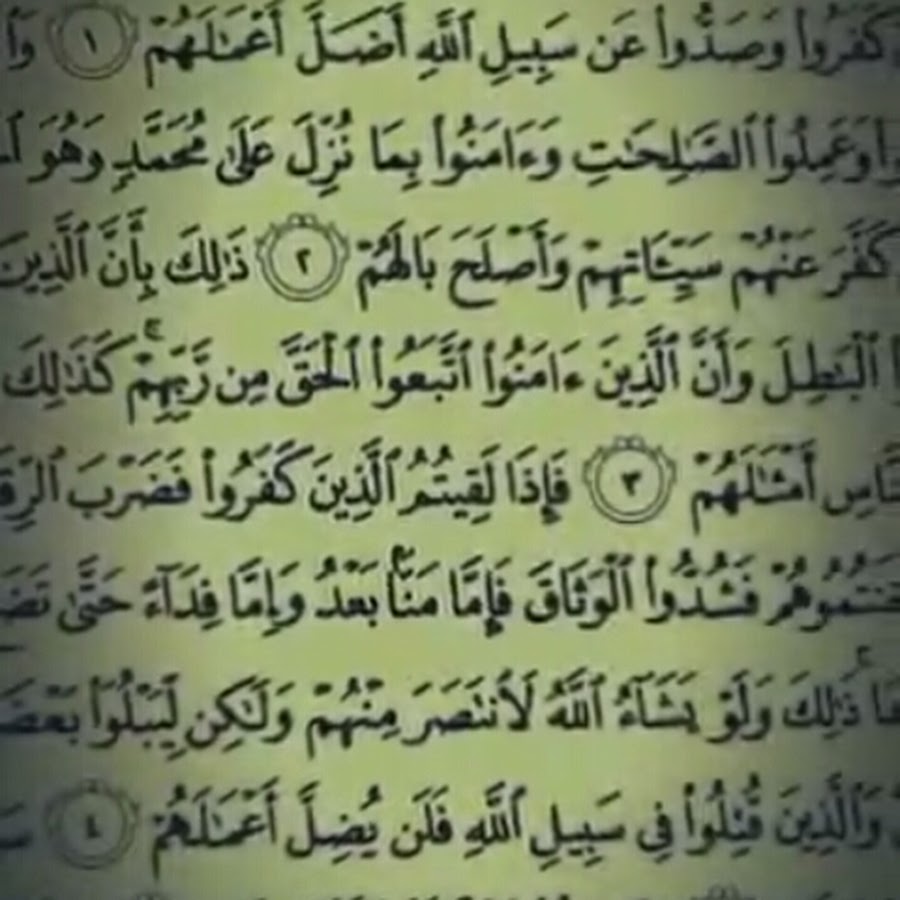 كَفَرُوا۟ وَصَدُّوا۟ عَن سَبِيلِ ٱللَّهِ أَضَلَّ أَعْمَـٰلَهُمْ ١
وَعَمِلُوا۟ ٱلصَّـٰلِحَـٰتِ وَءَامَنُوا۟ بِمَا نُزِّلَ عَلَىٰ مُحَمَّدٍ وَهُوَ
كَفَّرَ عَنْهُمْ سَيِّـَٔاتِهِمْ وَأَصْلَحَ بَالَهُمْ ٢ ذَٰلِكَ بِأَنَّ ٱلَّذِينَ
ٱلْبَـٰطِلَ وَأَنَّ ٱلَّذِينَ ءَامَنُوا۟ ٱتَّبَعُوا۟ ٱلْحَقَّ مِن رَّبِّهِمْ ۚ كَذَٰلِكَ
أَمْثَـٰلَهُمْ ٣ فَإِذَا لَقِيتُمُ ٱلَّذِينَ كَفَرُوا۟ فَضَرْبَ
فَشُدُّوا۟ ٱلْوَثَاقَ فَإِمَّا مَنًّۢا بَعْدُ وَإِمَّا فِدَآءً حَتَّىٰ
ذَٰلِكَ وَلَوْ يَشَآءُ ٱللَّهُ لَٱنتَصَرَ مِنْهُمْ وَلَـٰكِن لِّيَبْلُوَا۟
وَٱلَّذِينَ قُتِلُوا۟ فِى سَبِيلِ ٱللَّهِ فَلَن يُضِلَّ أَعْمَـٰلَهُمْ ٤